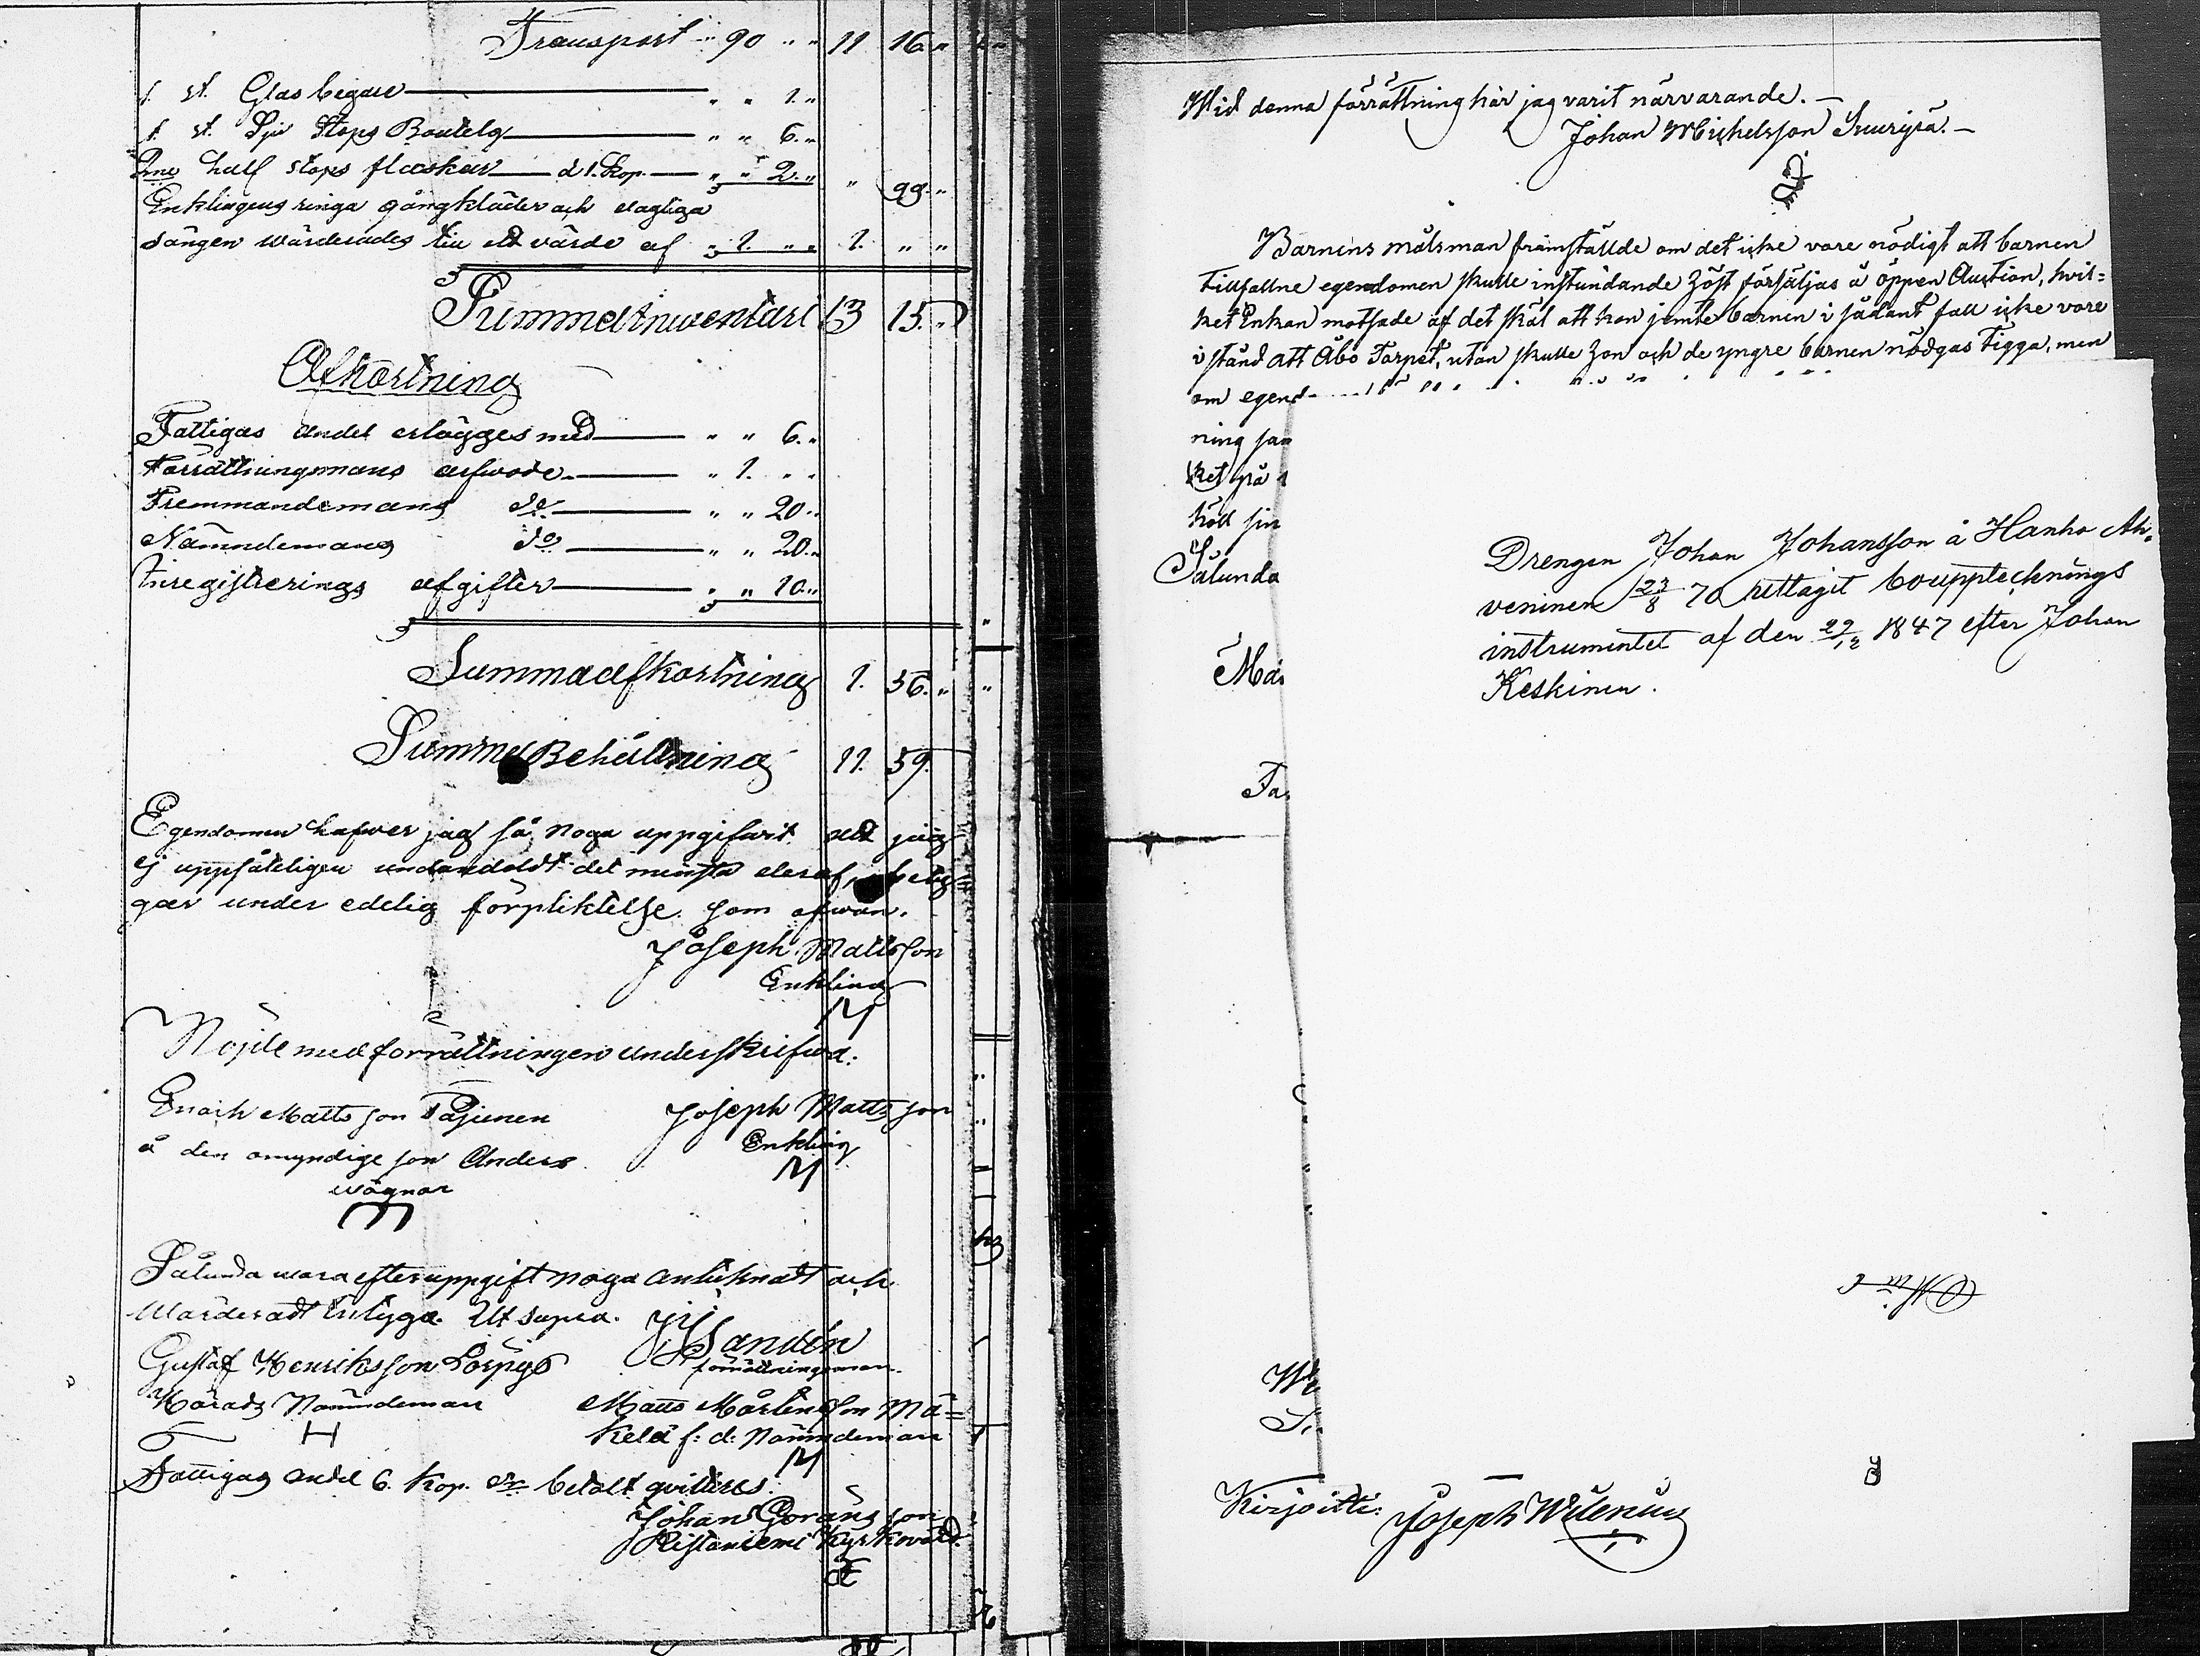 Transport " 90 " " 11 16 "
1. st. Glas begare " " 1. "
1. st. Sju Stops Boutelg " " 6. "
Tvne half stops flaskor d 1. Kop. " " 2. " " 99. "
Enklingens ringa gångkläder och dagliga
sängen wärderades till ett värde af " 1. " " 1. " "
Summa Inventarii 13 15. "
Afkortning
Fattigas andel erlägges med " " 6. "
Förrättningsmans arfwode " 1. " "
Fremmandemans do " " 20. "
Nämndemans do " " 20. "
Inregistrerings afgifter " " 10. "
Summa afkortning 1. 56. "
Summa Behållning 11. 59.
Egendomen hafwer jag så noga uppgifwit att jag
ej uppsåteligen undandoldt det minsta deraf,
gar under edelig förpliktelse. som ofwan.
Joseph Mattsson
Enkling
M
Nöjde med förrättningen underskrifwa:
Enoch Mattsson Pajunen
å den omyndige son Anders
wägnar
Joseph Mattsson
Enkling
M
Sålunda wara efter uppgift noga antecknadt och
Wärderadt Intyga. Ut supra.
Sandén
förrättningsman.
Gustaf Henriksson Lorpys
Härads Nämndeman
H
Matts Mårtensson Mä=
kelä f: d: Nämndeman
M
Fattigas andel 6. Kop. Sr betalt qvitteras.
Johan Göransson
Ristaniemi Kyrkovärd.
Wid denna förrättning har jag varit närvarande. —
Johan Michelsson Suurijrä. —
Barnens målsman framställde om det icke vore nödigt att barnen
tillfallne egendomen skulle instundande höst försäljas å öppen Auction, hvil=
ket Enkan motsade af det skäl att hon jemte barnen i sådant fall icke vore
i stånd att Åbo Torpet, utan skulle hon och de yngre barnen nödgas tigga, men
om egend
ning sam
ket på
höll sin
Sålunda
Drengen Johan Johansson å Hanho Ah=
veninen 23/8 70 uttagit bouppteckníngs
instrumentet af den 29/12 1847 efter Johan
Keskinen.
Mä
Fa
We
Kirjoitti: Joseph Wilenius